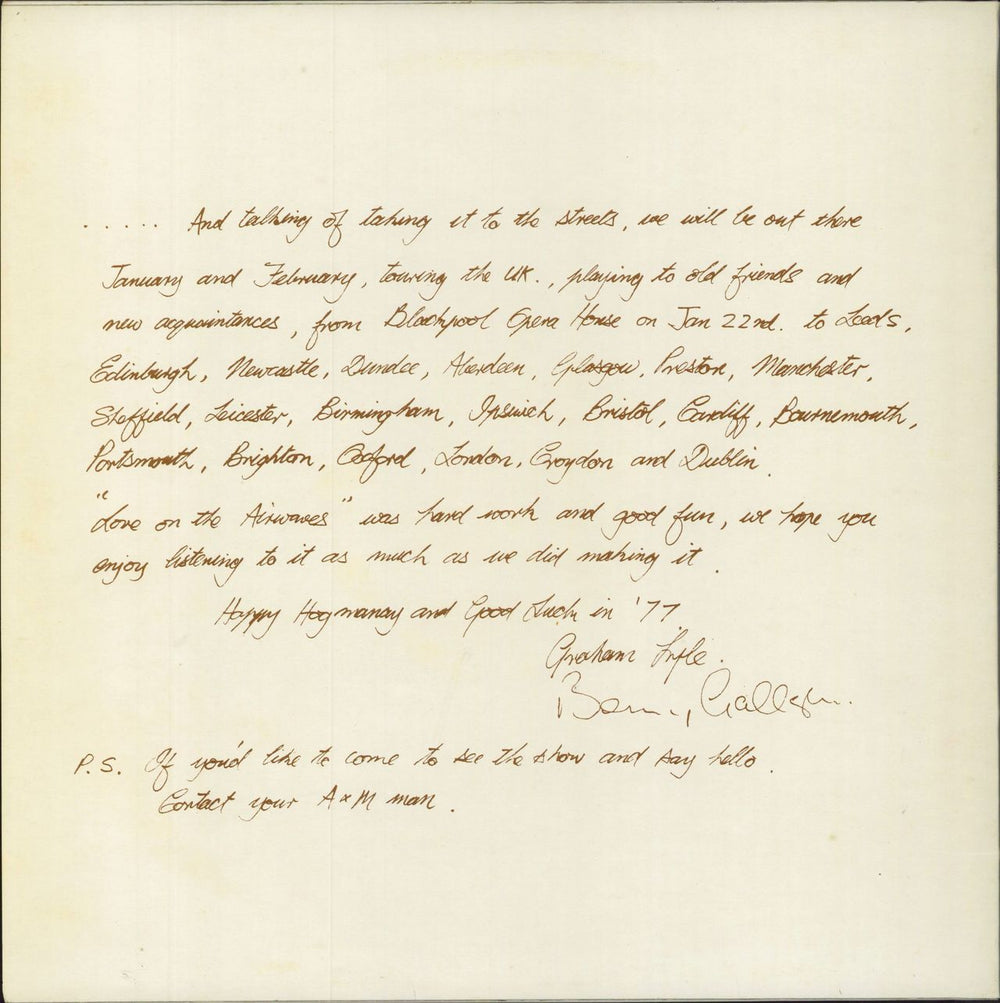 ..... And talking of taking it to the streets, we will be out there
January and February, touring the UK., playing to old friends and
new acquaintances, from Blackpool Opera House on Jan 22nd. to Leeds,
Edinburgh, Newcastle, Dundee, Aberdeen, Glasgow, Preston, Manchester,
Sheffield, Leicester, Birmingham, Ipswich, Bristol, Cardiff, Bournemouth,
Portsmouth, Brighton, Oxford, London, Croydon and Dublin.
"Love on the Airwaves" was hard work and good fun, we hope you
enjoy listening to it as much as we did making it.
Happy Hogmanay and Good Luck in '77
Graham Lyle.
Benny Gallagher.
P.S. If you'd like to come to see the show and say hello.
Contact your A & M man.